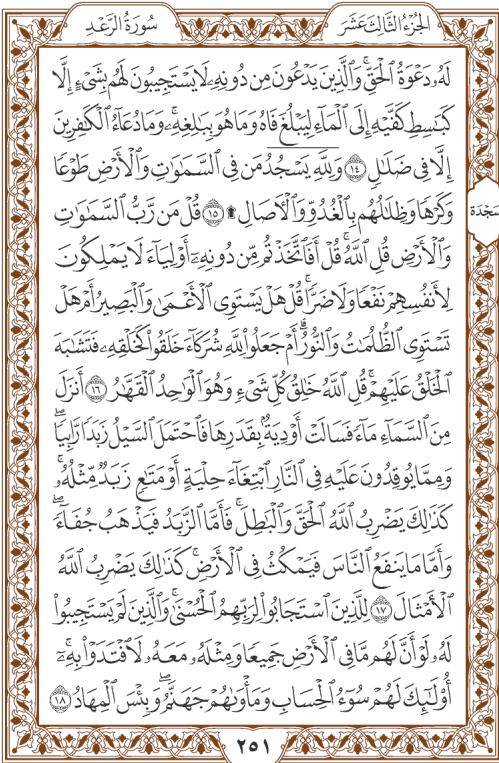 الجُزْءُ الثَّالِثَ عَشَرَ
سُورَةُ الرَّعْدِ
لَهُۥ دَعْوَةُ ٱلْحَقِّۖ وَٱلَّذِينَ يَدْعُونَ مِن دُونِهِۦ لَا يَسْتَجِيبُونَ لَهُم بِشَىْءٍ إِلَّا
كَبَـٰسِطِ كَفَّيْهِ إِلَى ٱلْمَآءِ لِيَبْلُغَ فَاهُ وَمَا هُوَ بِبَـٰلِغِهِۦۚ وَمَا دُعَآءُ ٱلْكَـٰفِرِينَ
إِلَّا فِى ضَلَـٰلٍ ١٤ وَلِلَّهِ يَسْجُدُ مَن فِى ٱلسَّمَـٰوَٰتِ وَٱلْأَرْضِ طَوْعًا
وَكَرْهًا وَظِلَـٰلُهُم بِٱلْغُدُوِّ وَٱلْـَٔاصَالِ ۩ ١٥ قُلْ مَن رَّبُّ ٱلسَّمَـٰوَٰتِ
سَجْدَة
وَٱلْأَرْضِ قُلِ ٱللَّهُۚ قُلْ أَفَٱتَّخَذْتُم مِّن دُونِهِۦٓ أَوْلِيَآءَ لَا يَمْلِكُونَ
لِأَنفُسِهِمْ نَفْعًا وَلَا ضَرًّاۚ قُلْ هَلْ يَسْتَوِى ٱلْأَعْمَىٰ وَٱلْبَصِيرُ أَمْ هَلْ
تَسْتَوِى ٱلظُّلُمَـٰتُ وَٱلنُّورُۗ أَمْ جَعَلُوا۟ لِلَّهِ شُرَكَآءَ خَلَقُوا۟ كَخَلْقِهِۦ فَتَشَـٰبَهَ
ٱلْخَلْقُ عَلَيْهِمْۚ قُلِ ٱللَّهُ خَـٰلِقُ كُلِّ شَىْءٍ وَهُوَ ٱلْوَٰحِدُ ٱلْقَهَّـٰرُ ١٦ أَنزَلَ
مِنَ ٱلسَّمَآءِ مَآءً فَسَالَتْ أَوْدِيَةٌۢ بِقَدَرِهَا فَٱحْتَمَلَ ٱلسَّيْلُ زَبَدًا رَّابِيًاۖ
وَمِمَّا يُوقِدُونَ عَلَيْهِ فِى ٱلنَّارِ ٱبْتِغَآءَ حِلْيَةٍ أَوْ مَتَـٰعٍ زَبَدٌ مِّثْلُهُۥۚ
كَذَٰلِكَ يَضْرِبُ ٱللَّهُ ٱلْحَقَّ وَٱلْبَـٰطِلَۚ فَأَمَّا ٱلزَّبَدُ فَيَذْهَبُ جُفَآءًۖ
وَأَمَّا مَا يَنفَعُ ٱلنَّاسَ فَيَمْكُثُ فِى ٱلْأَرْضِۚ كَذَٰلِكَ يَضْرِبُ ٱللَّهُ
ٱلْأَمْثَالَ ١٧ لِلَّذِينَ ٱسْتَجَابُوا۟ لِرَبِّهِمُ ٱلْحُسْنَىٰۚ وَٱلَّذِينَ لَمْ يَسْتَجِيبُوا۟
لَهُۥ لَوْ أَنَّ لَهُم مَّا فِى ٱلْأَرْضِ جَمِيعًا وَمِثْلَهُۥ مَعَهُۥ لَٱفْتَدَوْا۟ بِهِۦٓۚ
أُو۟لَـٰٓئِكَ لَهُمْ سُوٓءُ ٱلْحِسَابِ وَمَأْوَىٰهُمْ جَهَنَّمُۖ وَبِئْسَ ٱلْمِهَادُ ١٨
٢٥١